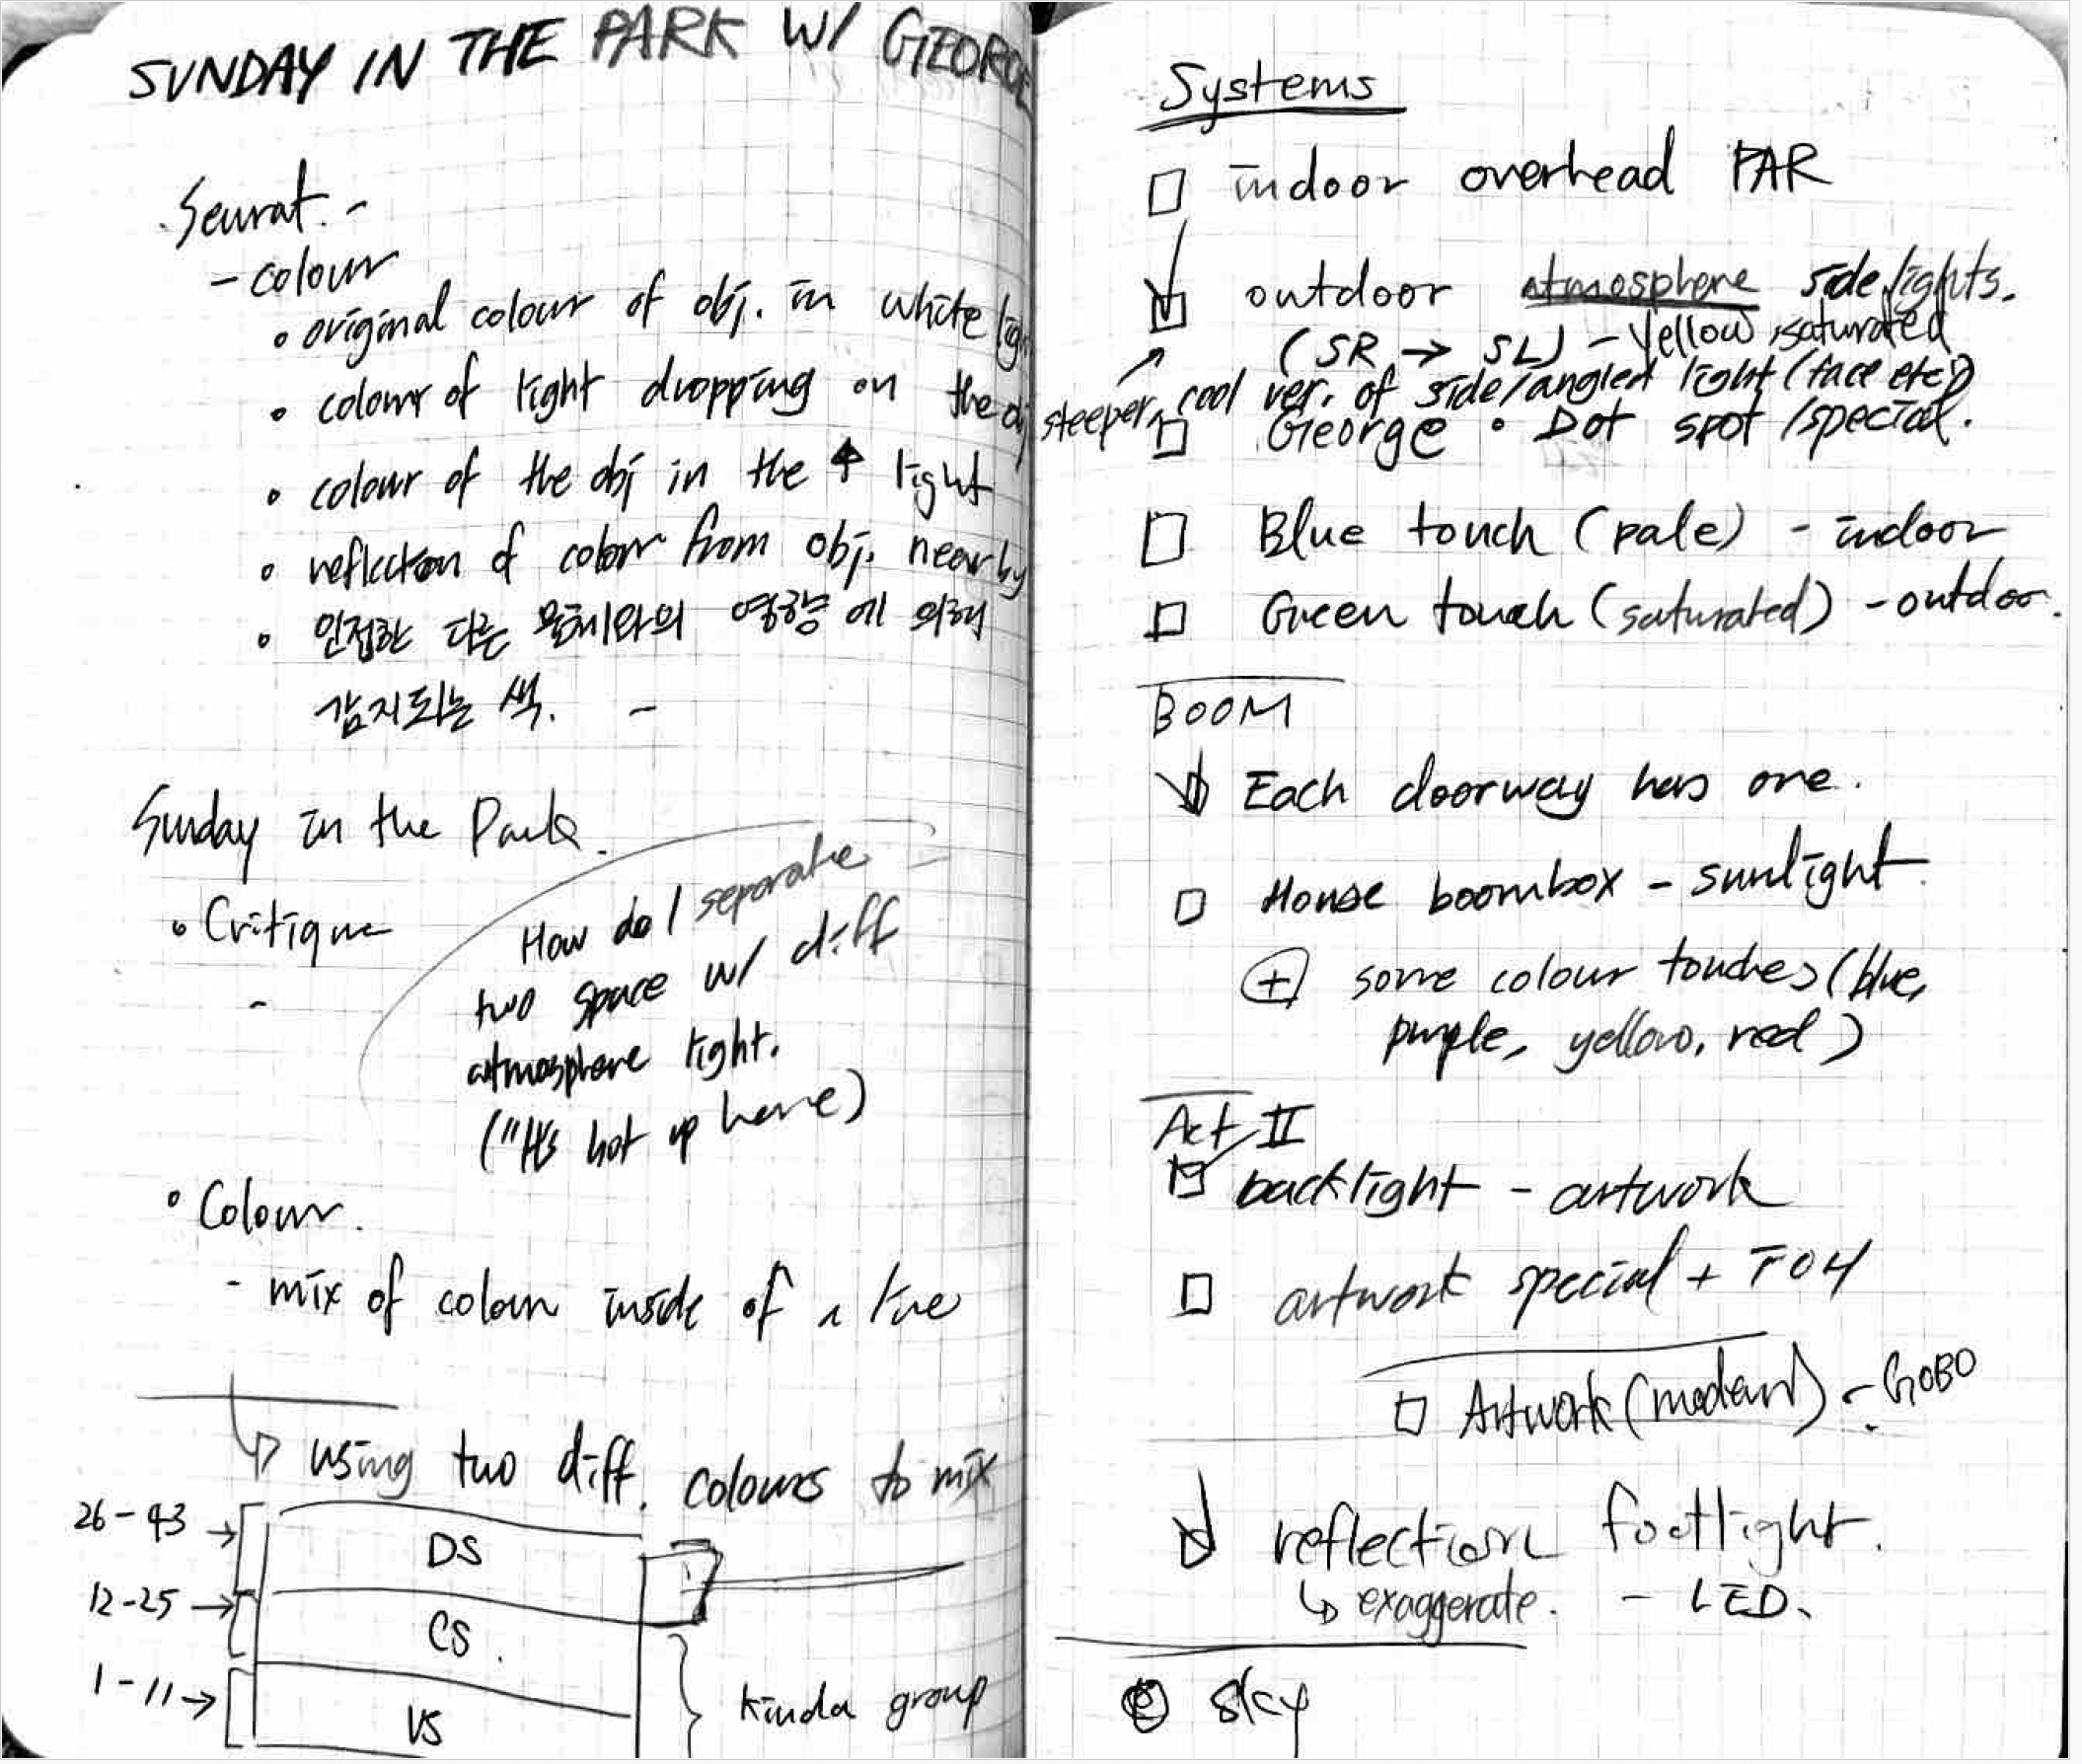 SUNDAY IN THE PARK W/ GEORGE
Seurat. -
- colour
• original colour of obj. in white
• colour of light dropping on the
• colour of the obj in the ↑ light
• reflection of colour from obj. nearby
• 인접한 다른 물체와의 영향에 의해
감지되는 색. -
Sunday in the Park.
• Critique
-
How do I separate
two space w/ diff
atmosphere light.
("It's hot up here)
• Colour.
- mix of colour inside of a
↳ using two diff. colours to mix
26-43 →
DS
12-25 →
CS.
1-11 →
US
kinda group
Systems
□ indoor overhead PAR
☑ outdoor atmosphere sidelights.
(SR → SL) - Yellow, saturated
steeper, cool ver. of side/angled light (face etc)
□ George • Dot spot/special.
□ Blue touch (pale) - indoor
□ Green touch (saturated) - outdoor.
BOOM
☑ Each doorway has one.
□ House boombox - sunlight
⊕ some colour touches (blue,
purple, yellow, red)
Act II
☑ backlight - artwork
□ artwork special + FOH
□ Artwork (modern) - GOBO
☑ reflection footlight.
↳ exaggerate. - LED.
sky